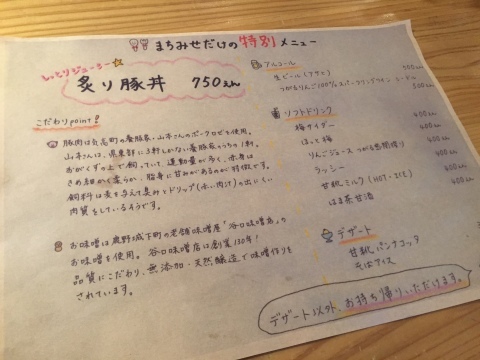 まちみせだけの特別メニュー
しっとりジューシー
炙り豚丼 750えん
こだわりpoint!
豚肉は気高町の養豚家・山本さんのポークロゼを使用。
山本さんは、県東部に3軒しかない養豚家のうちの1軒。
おがくずの上で飼っていて、運動量が多く、赤身は
きめ細かく柔らか、脂身に甘みがあるのが特徴です。
飼料は麦を与えて臭みとドリップ(赤い肉汁)の出にくい
肉質をしているそうです。
お味噌は鹿野城下町の老舗味噌屋「谷口味噌店」の
お味噌を使用。谷口味噌店は創業130年!
品質にこだわり、無添加・天然醸造で味噌作りを
されています。
アルコール
生ビール(アサヒ) 500えん
つがるりんご100%スパークリングワイン シードル 500えん
ソフトドリンク
梅サイダー 400えん
ほっと梅 400えん
りんごジュース 400えん
ラッシー 400えん
甘麹ミルク(HOT・ICE) 400えん
はる茶甘酒 400えん
デザート
甘麹パンナコッタ
そばアイス
デザート以外、お持ち帰りいただけます。